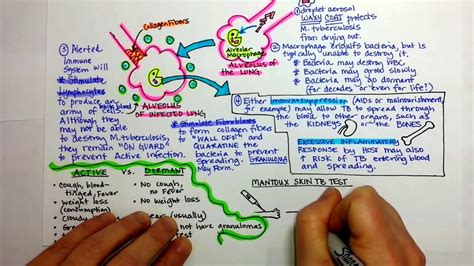 Collagen Fibers
Alveolar
Macrophage
ALVEOLUS OF
THE LUNG
ALVEOLUS
OF INFECTED LUNG
① droplet aerosol
WAXY COAT protects
M. tuberculosis
from drying out.
② Macrophage engulfs bacteria, but is
typically unable to destroy it.
* Bacteria may destroy WBC
* Bacteria may grow slowly
* Bacteria may be dormant
(for decades or even for life!)
③ Alerted
Immune
System will
* Stimulate
Lymphocytes
to produce an
army of cells.
Although they
may not be able
to destroy M.tuberculosis,
they remain "ON GUARD"
to prevent Active infection.
* Stimulate Fibroblasts
to form collagen fibers
to "WALL OFF" and
QUARANTINE the
bacteria to prevent
spreading.
GRANULOMA
may form.
④ Either Immunosuppression (AIDS or malnourishment,
for example) may allow TB to spread through
the blood to other organs, such as
the KIDNEYS or the BONES
EXCESSIVE INFLAMMATORY
RESPONSE by Host may also
↑ Risk of TB entering blood
and spreading.
ACTIVE vs. DORMANT
• cough, blood-
tinged, Fever
• weight loss
(consumption)
• cloudy
• No cough,
no Fever
• No weight
loss
(usually)
not have granulomas
test
MANTOUX SKIN TB TEST